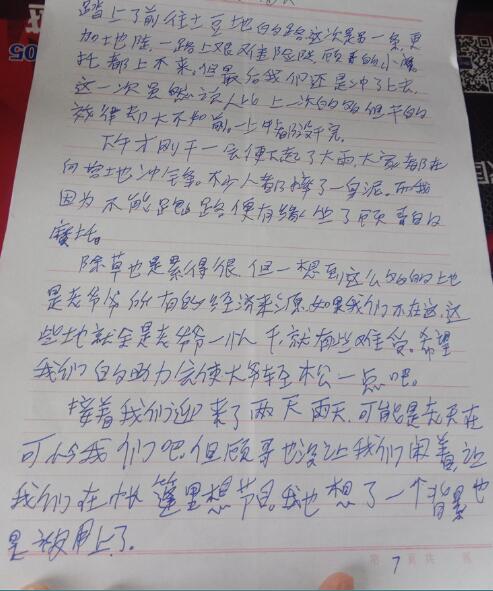 踏上了前往土豆地的路这次是另一条,更
加地陡,一路上艰难险陡,顾哥的小摩
托都上不来,但最后我们还是冲了上去,
这一次虽然人比上一次的多但干的
效律却大不如前。一上午都没干完,
下午才刚干一会便下起了大雨,大家都在
向营地冲锋。不少人都摔了一身泥。而我
因为不能跑路便有缘坐了顾哥的
摩托。
除草也是累得很,但一想到这么多的土地
是老爷爷所有的经济来源,如果我们不在这,这
些地就全是老爷爷一个人干,就有些难受。希望
我们的助力会使大爷轻松一点吧。
接着我们迎来了两天雨天,可能是老天在
可怜我们吧,但顾哥也没让我们闲着,让
我们在帐篷里想节目。我也想了一个背景也
是被用上了。
第 7 页 共 页
05